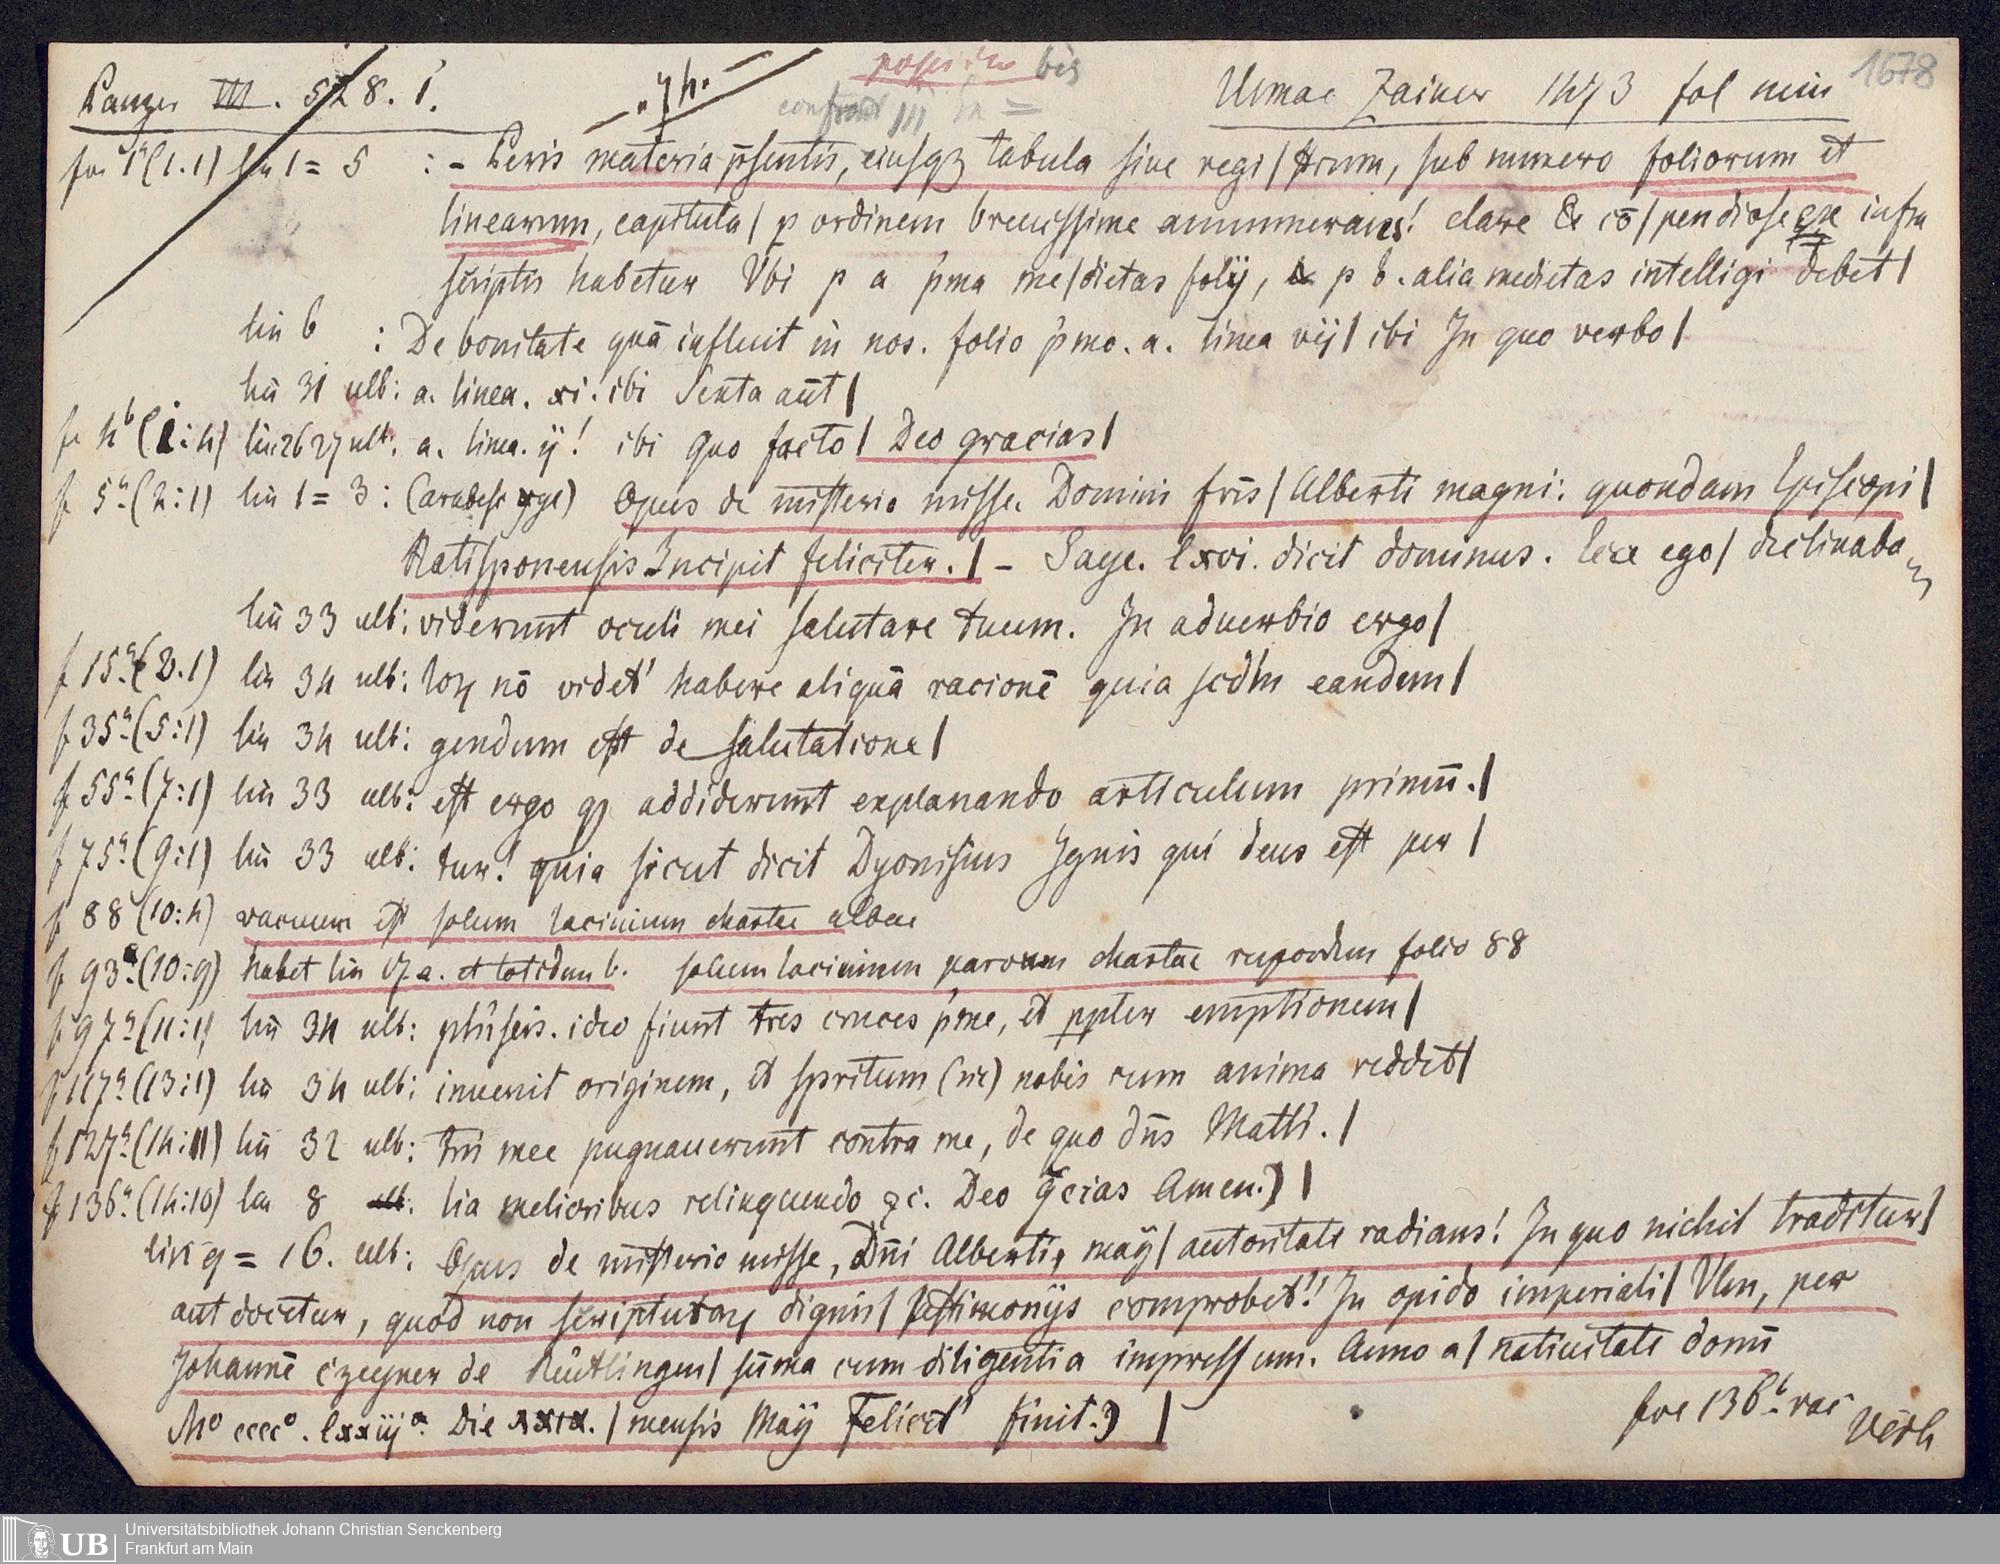 Panzer III. 528. 1. „ 4h. bis Ulmae Zainer 1473 fol min 1678
fol 1a (1.1) lin 1 = 5 : - Peris materia p̄sentis, eiusqȝ tabula siue regi / strum, sub numero foliorum et
linearum, capitula / p ordinem breuissime annumerans! clare & cō / pendiose ex infra
scriptis habetur Vbi p a p'ma me / dietas folij, & p b. alia medietas intelligi debet /
lin 6 : De bonitate quā influit in nos. folio p'mo. a. linea vij / ibi In quo verbo /
lin 31 ult: a. linea. xi. ibi Sexta aūt /
f 4b (1:4) lin 26 27 ult. a. linea. ij! ibi Quo facto / Deo gracias /
f 5a (2:1) lin 1 = 3 : Opus de misterio misse. Domini fr̄is / Alberti magni: quondam Episcopi /
Ratisponensis Incipit feliciter. / - Saye. lxvi. dicit dominus. Ecce ego / declinabam
lin 33 ult: viderunt oculi mei salutare tuum. In aduerbio ergo /
f 15a (2.1) lin 34 ult: nō videt' habere aliquā racionē quia scdm eandem /
f 35a (5:1) lin 34 ult: gendum est de salutatione /
f 55a (7:1) lin 33 ult: est ergo qȝ addiderunt explanando articulum primū. /
f 75a (9:1) lin 33 ult: tur! quia sicut dicit Dyonisius Ignis qui deus est per /
f 88 (10:4) vacuum est solum lacinium chartae albae
f 93a (10:9) habet lin 17 a. et totidem b. solum lacinium parvum chartae folio 88
f 97a (11:1) lin 34 ult: ideo fiunt tres cruces p'me, et ppter emptionem /
f 117a (13:1) lin 34 ult: inuenit originem, et spritum (sic) nobis cum anima reddet /
f 127a (14:1) lin 32 ult: mee pugnauerunt contra me, de quo dn̄s Matth. /
f 136a (14:10) lin 8 : lia melioribus relinquendo ⁊c. Deo gr̄cias Amen.) /
lin 9 = 16. ult: Opus de misterio misse, Dn̄i Alberti, maӱ / autoritate radians! In quo nichil traditur /
aut docetur, quod non scripturarꝝ dignis / testimonijs comprobet'! In opido imperiali / Vlm, per
Johannē czeyner de Reutlingen / sūma cum diligentia impressum. Anno a / natiuitate domi
Mo cccco. lxxiijo. Die xxix. / mensis Maӱ Felicit' finit.) /
fol 136b vac
Universitätsbibliothek Johann Christian Senckenberg
Frankfurt am Main
UB